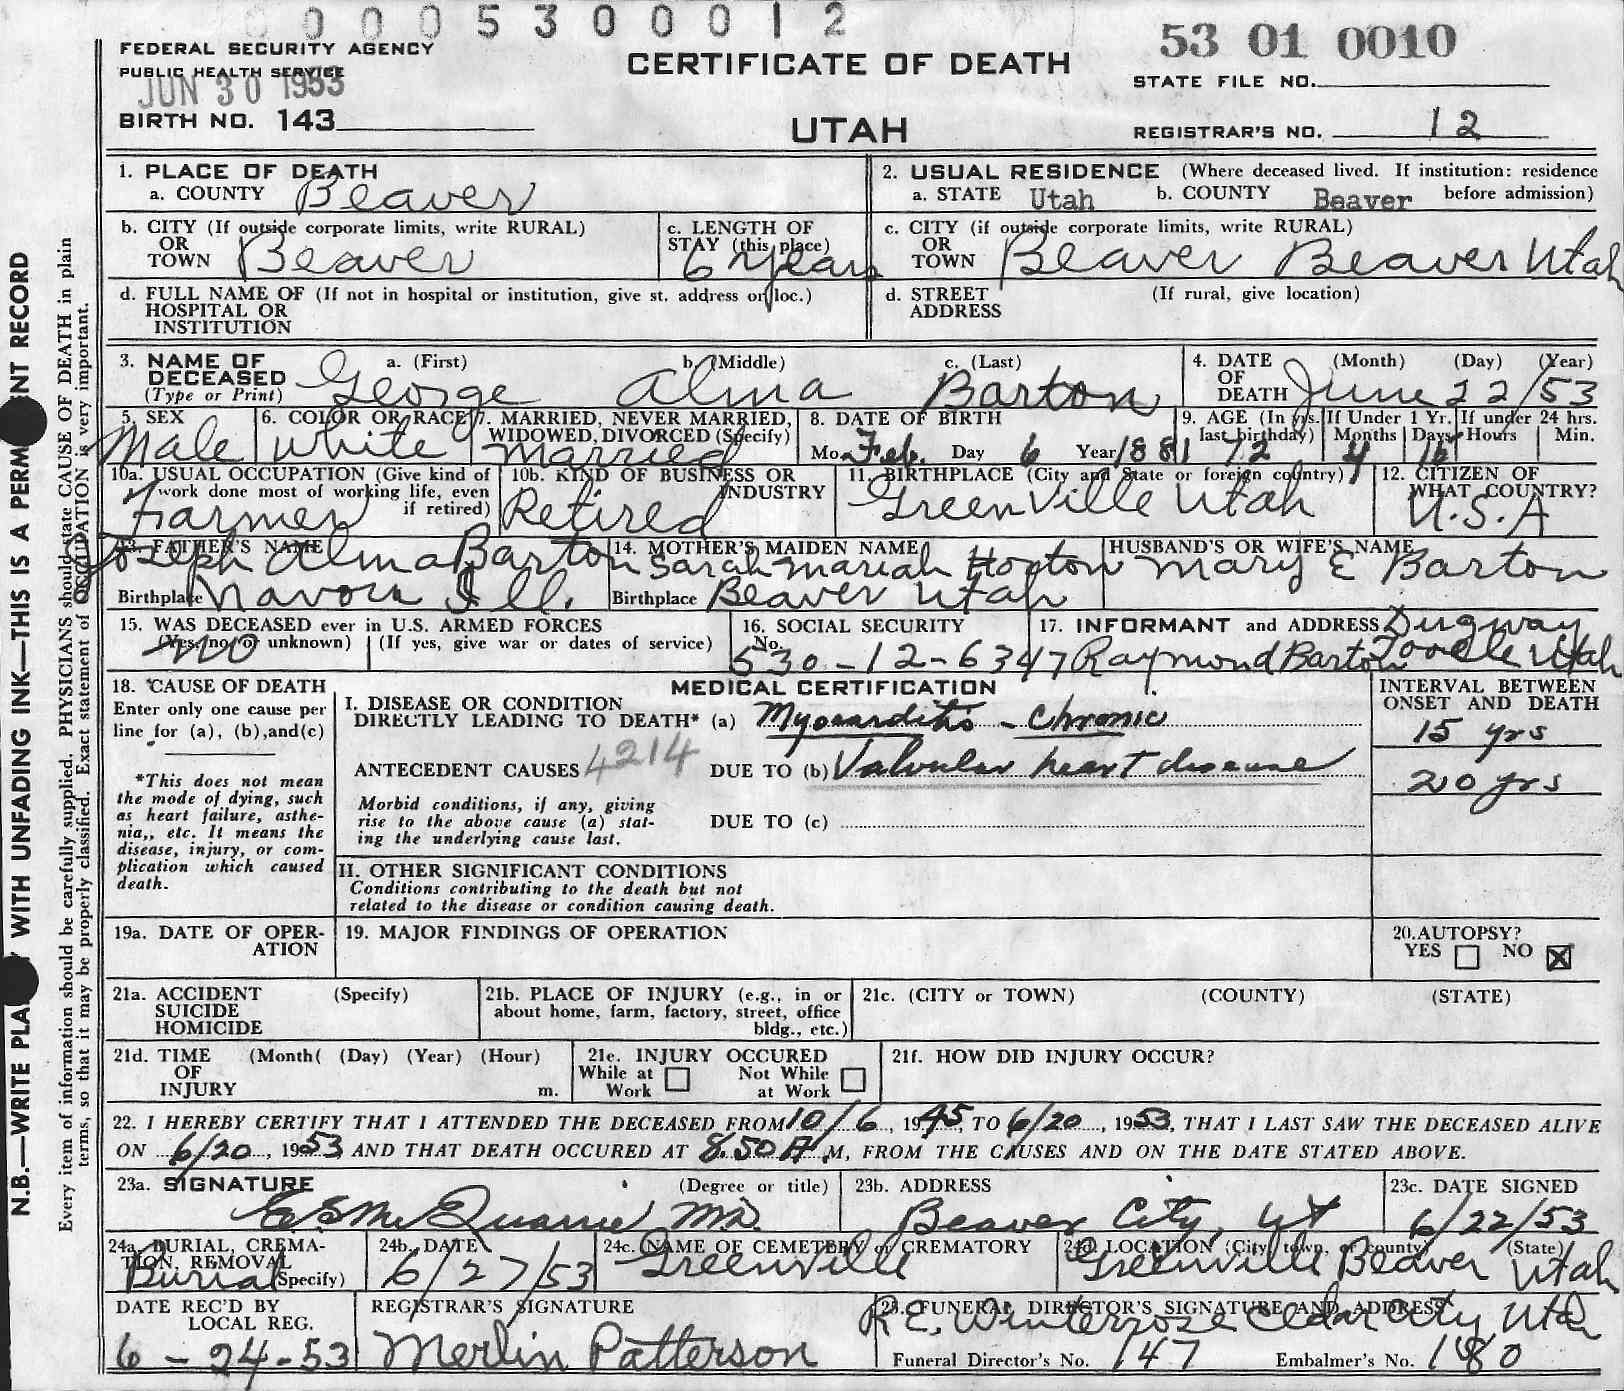 0 0 0 5 3 0 0 0 1 2
53 01 0010
FEDERAL SECURITY AGENCY
PUBLIC HEALTH SERVICE
JUN 30 1953
BIRTH NO. 143
CERTIFICATE OF DEATH
UTAH
STATE FILE NO.
REGISTRAR'S NO. 12
N.B.—WRITE PLA WITH UNFADING INK—THIS IS A PERM ENT RECORD
Every item of information should be carefully supplied. PHYSICIANS should state CAUSE OF DEATH in plain
terms, so that it may be properly classified. Exact statement of OCCUPATION is very important.
1. PLACE OF DEATH
a. COUNTY Beaver
2. USUAL RESIDENCE (Where deceased lived. If institution: residence
a. STATE Utah b. COUNTY Beaver before admission)
b. CITY (If outside corporate limits, write RURAL)
OR
TOWN Beaver
c. LENGTH OF
STAY (this place)
6 years
c. CITY (if outside corporate limits, write RURAL)
OR
TOWN Beaver Beaver Utah
d. FULL NAME OF (If not in hospital or institution, give st. address or loc.)
HOSPITAL OR
INSTITUTION
d. STREET (If rural, give location)
ADDRESS
3. NAME OF a. (First) b. (Middle) c. (Last)
DECEASED George Alma Barton
(Type or Print)
4. DATE (Month) (Day) (Year)
OF
DEATH June 22/53
5. SEX
Male
6. COLOR OR RACE
White
7. MARRIED, NEVER MARRIED,
WIDOWED, DIVORCED (Specify)
Married
8. DATE OF BIRTH
Mo. Feb. Day 6 Year 1881
9. AGE (In yrs. If Under 1 Yr. If under 24 hrs.
last birthday) Months Days Hours Min.
72 4 16
10a. USUAL OCCUPATION (Give kind of
work done most of working life, even
if retired)
Farmer
10b. KIND OF BUSINESS OR
INDUSTRY
Retired
11. BIRTHPLACE (City and State or foreign country)
Greenville Utah
12. CITIZEN OF
WHAT COUNTRY?
U.S.A
13. FATHER'S NAME
Joseph Alma Barton
Birthplace Navou Ill.
14. MOTHER'S MAIDEN NAME
Sarah Mariah Horton
Birthplace Beaver Utah
HUSBAND'S OR WIFE'S NAME
Mary E Barton
15. WAS DECEASED ever in U.S. ARMED FORCES
(Yes, no, or unknown) (If yes, give war or dates of service)
no
16. SOCIAL SECURITY
No.
530-12-6347
17. INFORMANT and ADDRESS Dugway
Raymond Barton Tooele Utah
18. CAUSE OF DEATH
Enter only one cause per
line for (a), (b), and (c)
*This does not mean
the mode of dying, such
as heart failure, asthe-
nia,, etc. It means the
disease, injury, or com-
plication which caused
death.
MEDICAL CERTIFICATION
I. DISEASE OR CONDITION
DIRECTLY LEADING TO DEATH* (a) Myocarditis - Chronic
ANTECEDENT CAUSES 4214 DUE TO (b) Valvular heart disease
Morbid conditions, if any, giving
rise to the above cause (a) stat-
ing the underlying cause last.
DUE TO (c)
II. OTHER SIGNIFICANT CONDITIONS
Conditions contributing to the death but not
related to the disease or condition causing death.
INTERVAL BETWEEN
ONSET AND DEATH
15 yrs
20 yrs
19a. DATE OF OPER-
ATION
19. MAJOR FINDINGS OF OPERATION
20. AUTOPSY?
YES NO X
21a. ACCIDENT (Specify)
SUICIDE
HOMICIDE
21b. PLACE OF INJURY (e.g., in or
about home, farm, factory, street, office
bldg., etc.)
21c. (CITY or TOWN) (COUNTY) (STATE)
21d. TIME (Month( (Day) (Year) (Hour)
OF
INJURY m.
21e. INJURY OCCURED
While at Not While
Work at Work
21f. HOW DID INJURY OCCUR?
22. I HEREBY CERTIFY THAT I ATTENDED THE DECEASED FROM 10/6, 1945, TO 6/20, 1953, THAT I LAST SAW THE DECEASED ALIVE
ON 6/20, 1953 AND THAT DEATH OCCURED AT 8.50 A.M, FROM THE CAUSES AND ON THE DATE STATED ABOVE.
23a. SIGNATURE (Degree or title)
McQuarrie MD.
23b. ADDRESS
Beaver City, Ut
23c. DATE SIGNED
6/22/53
24a. BURIAL, CREMA-
TION, REMOVAL
Burial (Specify)
24b. DATE
6/27/53
24c. NAME OF CEMETERY or CREMATORY
Greenville
24d. LOCATION (City, town, or county) (State)
Greenville Beaver Utah
DATE REC'D BY
LOCAL REG.
6-24-53
REGISTRAR'S SIGNATURE
Merlin Patterson
25. FUNERAL DIRECTOR'S SIGNATURE AND ADDRESS
R.E. Winterrose Cedar City Utah
Funeral Director's No. 147 Embalmer's No. 180